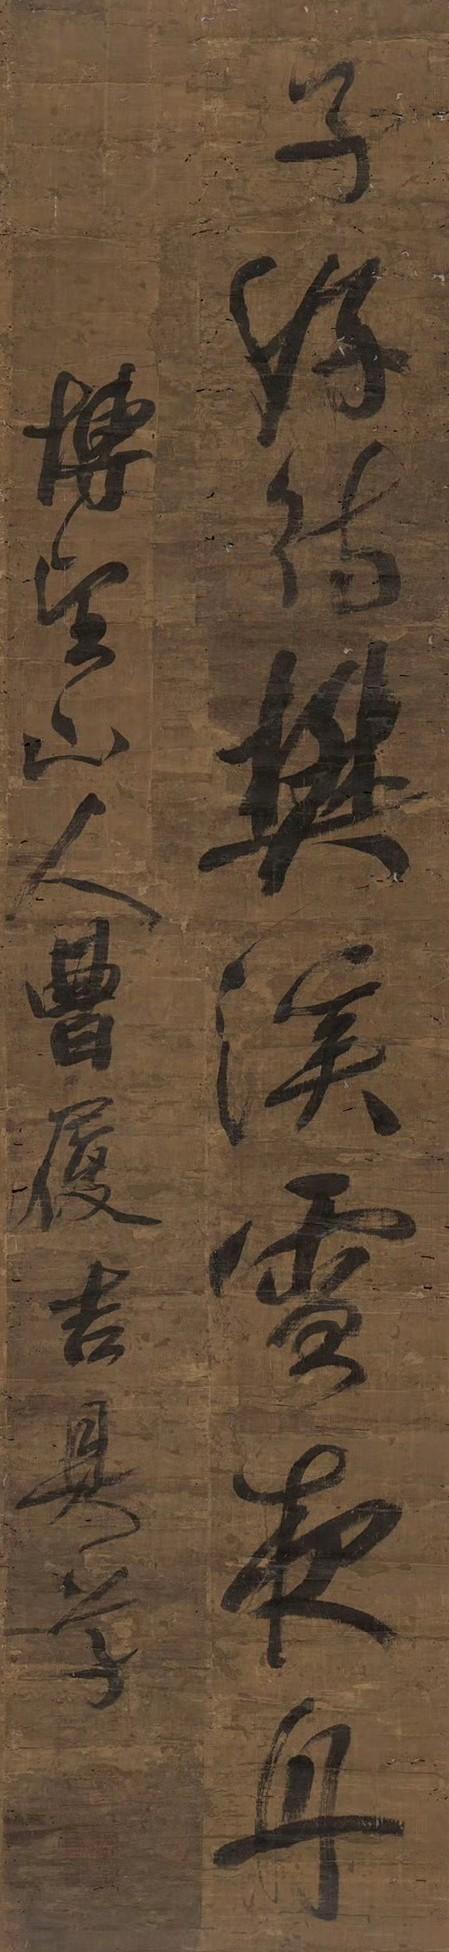 子猷待樊溪雪夜舟
博望山人曹履吉具草